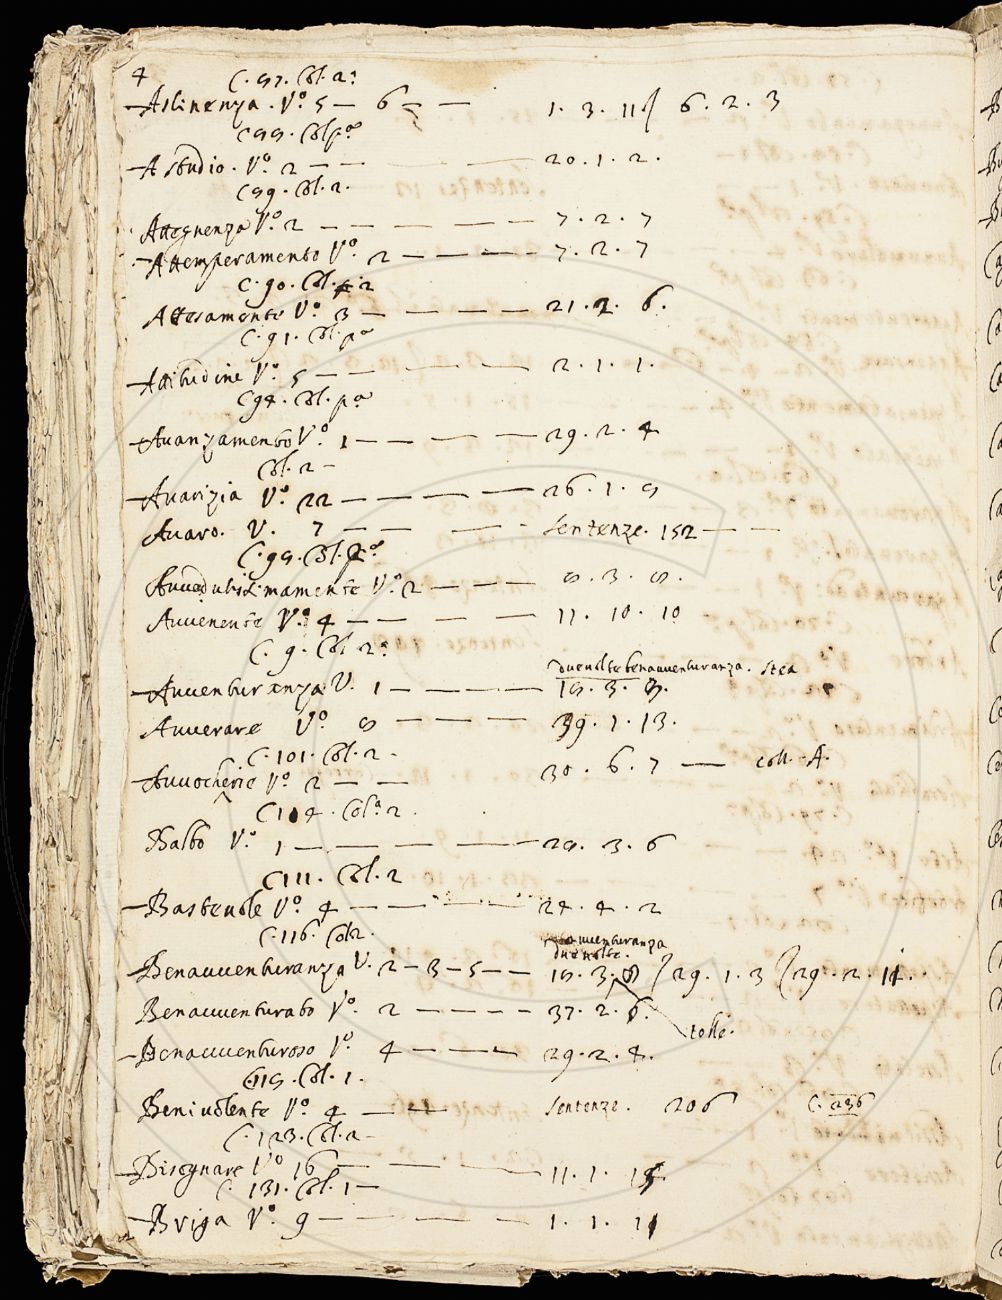 4 C. 87. Col. 2ª
Astinenza. Vº 5 — 6 — — 1. 3. 11 ( 6. 2. 3
C 88. Col pª
Astudio. Vº 2 — — 20. 1. 2.
C 89. Col. 2.
Attegnenza Vº 2 — — — — 7. 2. 7
Attemperamento Vº. 2 — — — — 7. 2. 7
C. 90. Col. 2
Attesamente Vº. 3 — — — — 21. 2. 6.
C. 91. Col. pª
Attitudine Vº. 5 — — — — 2. 1. 1.
C 94. Col. pª
Avanzamento Vº. 1 — — — — 29. 2. 4
Col. 2 —
Avarizia Vº. 22 — — — — 26. 1. 8
Avaro. V. 7 — — — — Sentenze. 152 — —
C. 98. Col. pª
Vº. 2 — — — 8. 3. 8.
Avvenente Vº. 4 — — — — 11. 10. 10
C. 9. Col. 2ª
due volte benavventuranza.
Avventuranza V. 1 — — — — 18. 3. 8.
Avverare Vº 8 — — — — 39. 1. 13.
C. 101. Col. 2.
Avvocherie Vº 2 — — 30. 6. 7 — coll. A.
C 104. Colª 2.
Balbo Vº. 1 — — — — 28. 3. 6
C 111. Col. 2
Bastevole Vº. 4 — — — — 24. 4. 2
C. 116. Col 2.
avventuranza
due volte.
Benavventuranza V. 2 — 3 — 5 — — 18. 3. 8 ( 29. 1. 3 ( 29. 2. 11.
Benavventurato Vº. 2 — — — — 37. 2. 6.
tolle.
Benavventuroso Vº. 4 — — — 29. 2. 4.
C. 118. Col. 1.
Benivolente Vº. 4 — — Sentenze. 206 C. 236
C. 123. Col. 2 —
Bisegnare Vº 16 — — — — 11. 1.
C. 131. Col. 1 —
Briga Vº. 9 — — — — 1. 1. 11